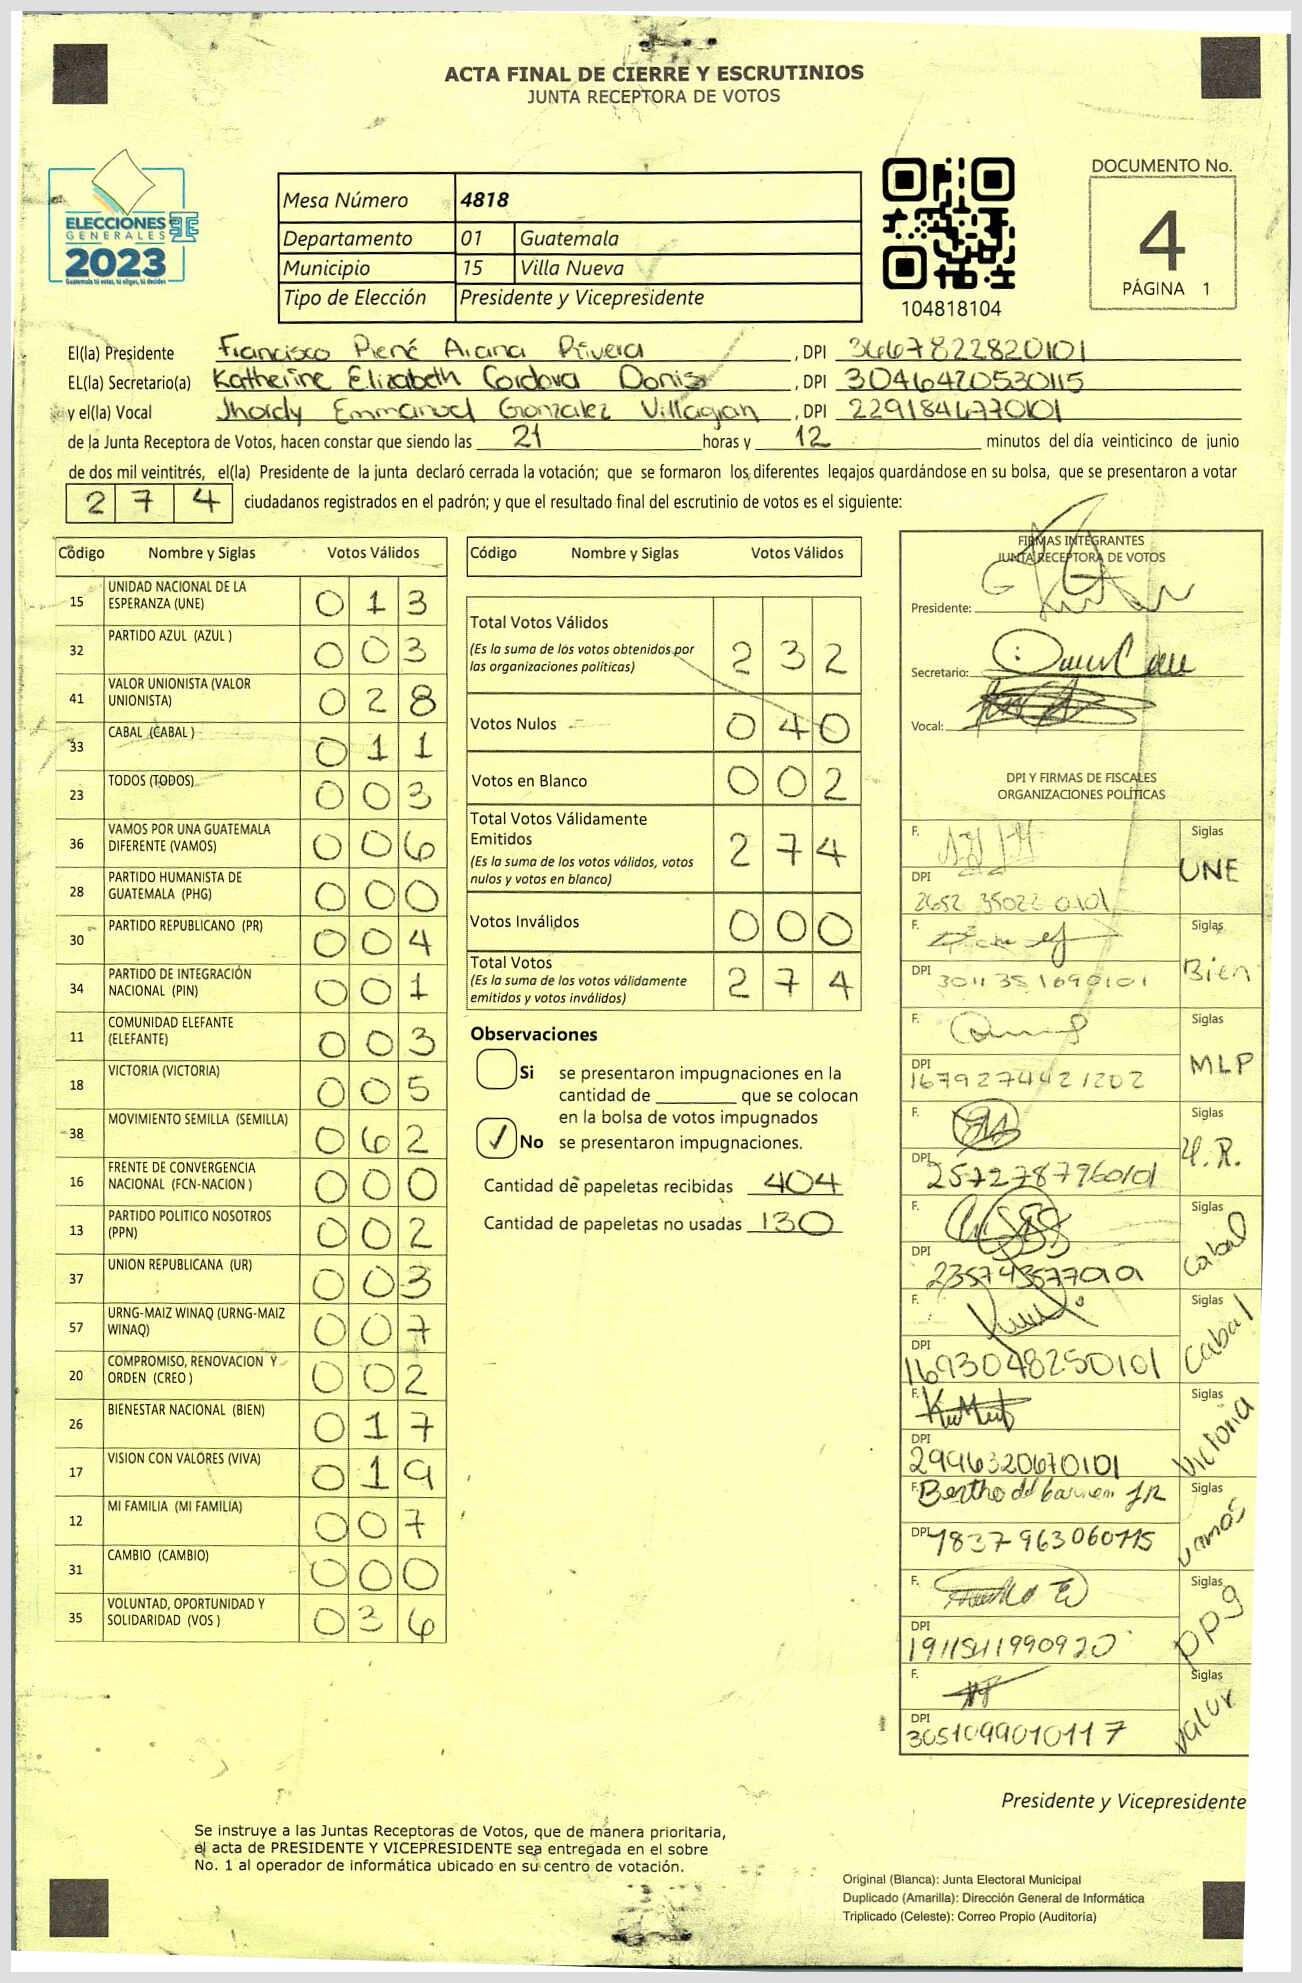 ACTA FINAL DE CIERRE Y ESCRUTINIOS
JUNTA RECEPTORA DE VOTOS
ELECCIONES
GENERALES
2023
Guatemala tú votas, tú eliges, tú decides
Mesa Número 4818
Departamento 01 Guatemala
Municipio 15 Villa Nueva
Tipo de Elección Presidente y Vicepresidente
104818104
DOCUMENTO No.
4
PÁGINA 1
El(la) Presidente Francisco René Arana Rivera , DPI 3667822820101
EL(la) Secretario(a) Katherine Elizabeth Cordova Donis , DPI 3046420530115
y el(la) Vocal Jhordy Emmanuel Gonzalez Villagran , DPI 2291846770101
de la Junta Receptora de Votos, hacen constar que siendo las 21 horas y 12 minutos del día veinticinco de junio
de dos mil veintitrés, el(la) Presidente de la junta declaró cerrada la votación; que se formaron los diferentes legajos quardándose en su bolsa, que se presentaron a votar
2 7 4 ciudadanos registrados en el padrón; y que el resultado final del escrutinio de votos es el siguiente:
Código Nombre y Siglas Votos Válidos
15 UNIDAD NACIONAL DE LA ESPERANZA (UNE) 0 1 3
32 PARTIDO AZUL (AZUL ) 0 0 3
41 VALOR UNIONISTA (VALOR UNIONISTA) 0 2 8
33 CABAL (CABAL ) 0 1 1
23 TODOS (TODOS) 0 0 3
36 VAMOS POR UNA GUATEMALA DIFERENTE (VAMOS) 0 0 6
28 PARTIDO HUMANISTA DE GUATEMALA (PHG) 0 0 0
30 PARTIDO REPUBLICANO (PR) 0 0 4
34 PARTIDO DE INTEGRACIÓN NACIONAL (PIN) 0 0 1
11 COMUNIDAD ELEFANTE (ELEFANTE) 0 0 3
18 VICTORIA (VICTORIA) 0 0 5
38 MOVIMIENTO SEMILLA (SEMILLA) 0 6 2
16 FRENTE DE CONVERGENCIA NACIONAL (FCN-NACION ) 0 0 0
13 PARTIDO POLITICO NOSOTROS (PPN) 0 0 2
37 UNION REPUBLICANA (UR) 0 0 3
57 URNG-MAIZ WINAQ (URNG-MAIZ WINAQ) 0 0 7
20 COMPROMISO, RENOVACION Y ORDEN (CREO ) 0 0 2
26 BIENESTAR NACIONAL (BIEN) 0 1 7
17 VISION CON VALORES (VIVA) 0 1 9
12 MI FAMILIA (MI FAMILIA) 0 0 7
31 CAMBIO (CAMBIO) 0 0 0
35 VOLUNTAD, OPORTUNIDAD Y SOLIDARIDAD (VOS ) 0 3 6
Código Nombre y Siglas Votos Válidos
Total Votos Válidos 2 3 2
(Es la suma de los votos obtenidos por
las organizaciones políticas)
Votos Nulos 0 4 0
Votos en Blanco 0 0 2
Total Votos Válidamente
Emitidos 2 7 4
(Es la suma de los votos válidos, votos
nulos y votos en blanco)
Votos Inválidos 0 0 0
Total Votos 2 7 4
(Es la suma de los votos válidamente
emitidos y votos inválidos)
Observaciones
Si se presentaron impugnaciones en la
cantidad de ________ que se colocan
en la bolsa de votos impugnados
✓ No se presentaron impugnaciones.
Cantidad de papeletas recibidas 404
Cantidad de papeletas no usadas 130
FIRMAS INTEGRANTES
JUNTA RECEPTORA DE VOTOS
Presidente:
Secretario:
Vocal:
DPI Y FIRMAS DE FISCALES
ORGANIZACIONES POLÍTICAS
F. Siglas
UNE
DPI
F. Siglas
Bien
DPI 3011351690101
F. Siglas
MLP
DPI
1679274421202
F. Siglas
U.R.
DPI
2572787960101
F. Siglas
Cabal
DPI
F. Siglas
Cabal
DPI
1693048250101
F. Siglas
Victoria
DPI
2996320670101
F. Siglas
Vamos
DPI
F. Siglas
PPg
DPI
1911541990920
F. Siglas
Valor
DPI
3051099010117
Presidente y Vicepresidente
Se instruye a las Juntas Receptoras de Votos, que de manera prioritaria,
el acta de PRESIDENTE Y VICEPRESIDENTE sea entregada en el sobre
No. 1 al operador de informática ubicado en su centro de votación.
Original (Blanca): Junta Electoral Municipal
Duplicado (Amarilla): Dirección General de Informática
Triplicado (Celeste): Correo Propio (Auditoría)